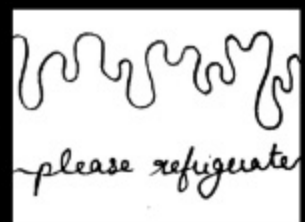 please refrigerate